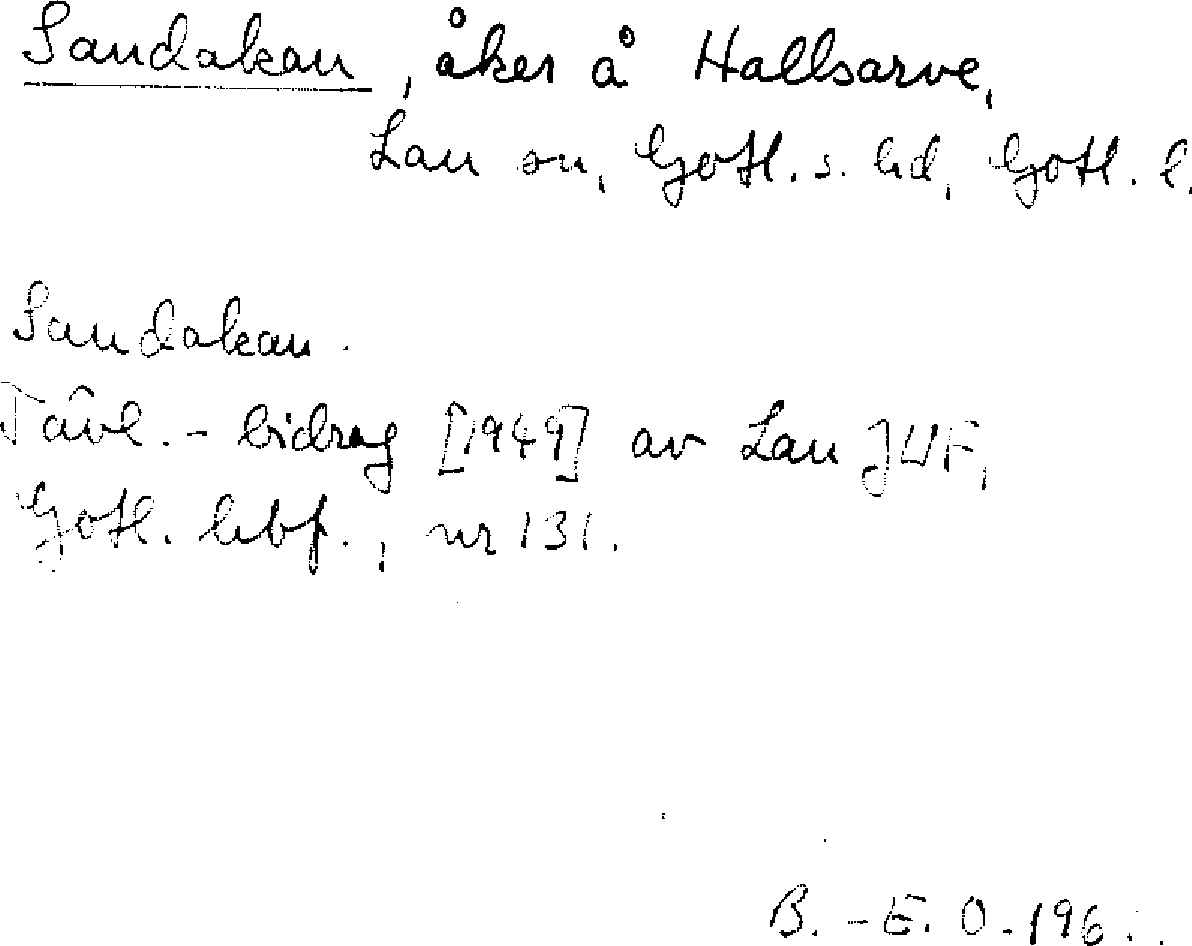 Sandakan, åker å Hallsarve,
Lau sn, Gotl. s. hd, Gotl. l.
Sandakan.
Tävl.-bidrag [1949] av Lau JUF,
Gotl. hbf., nr 131.
B.-E. O. 196